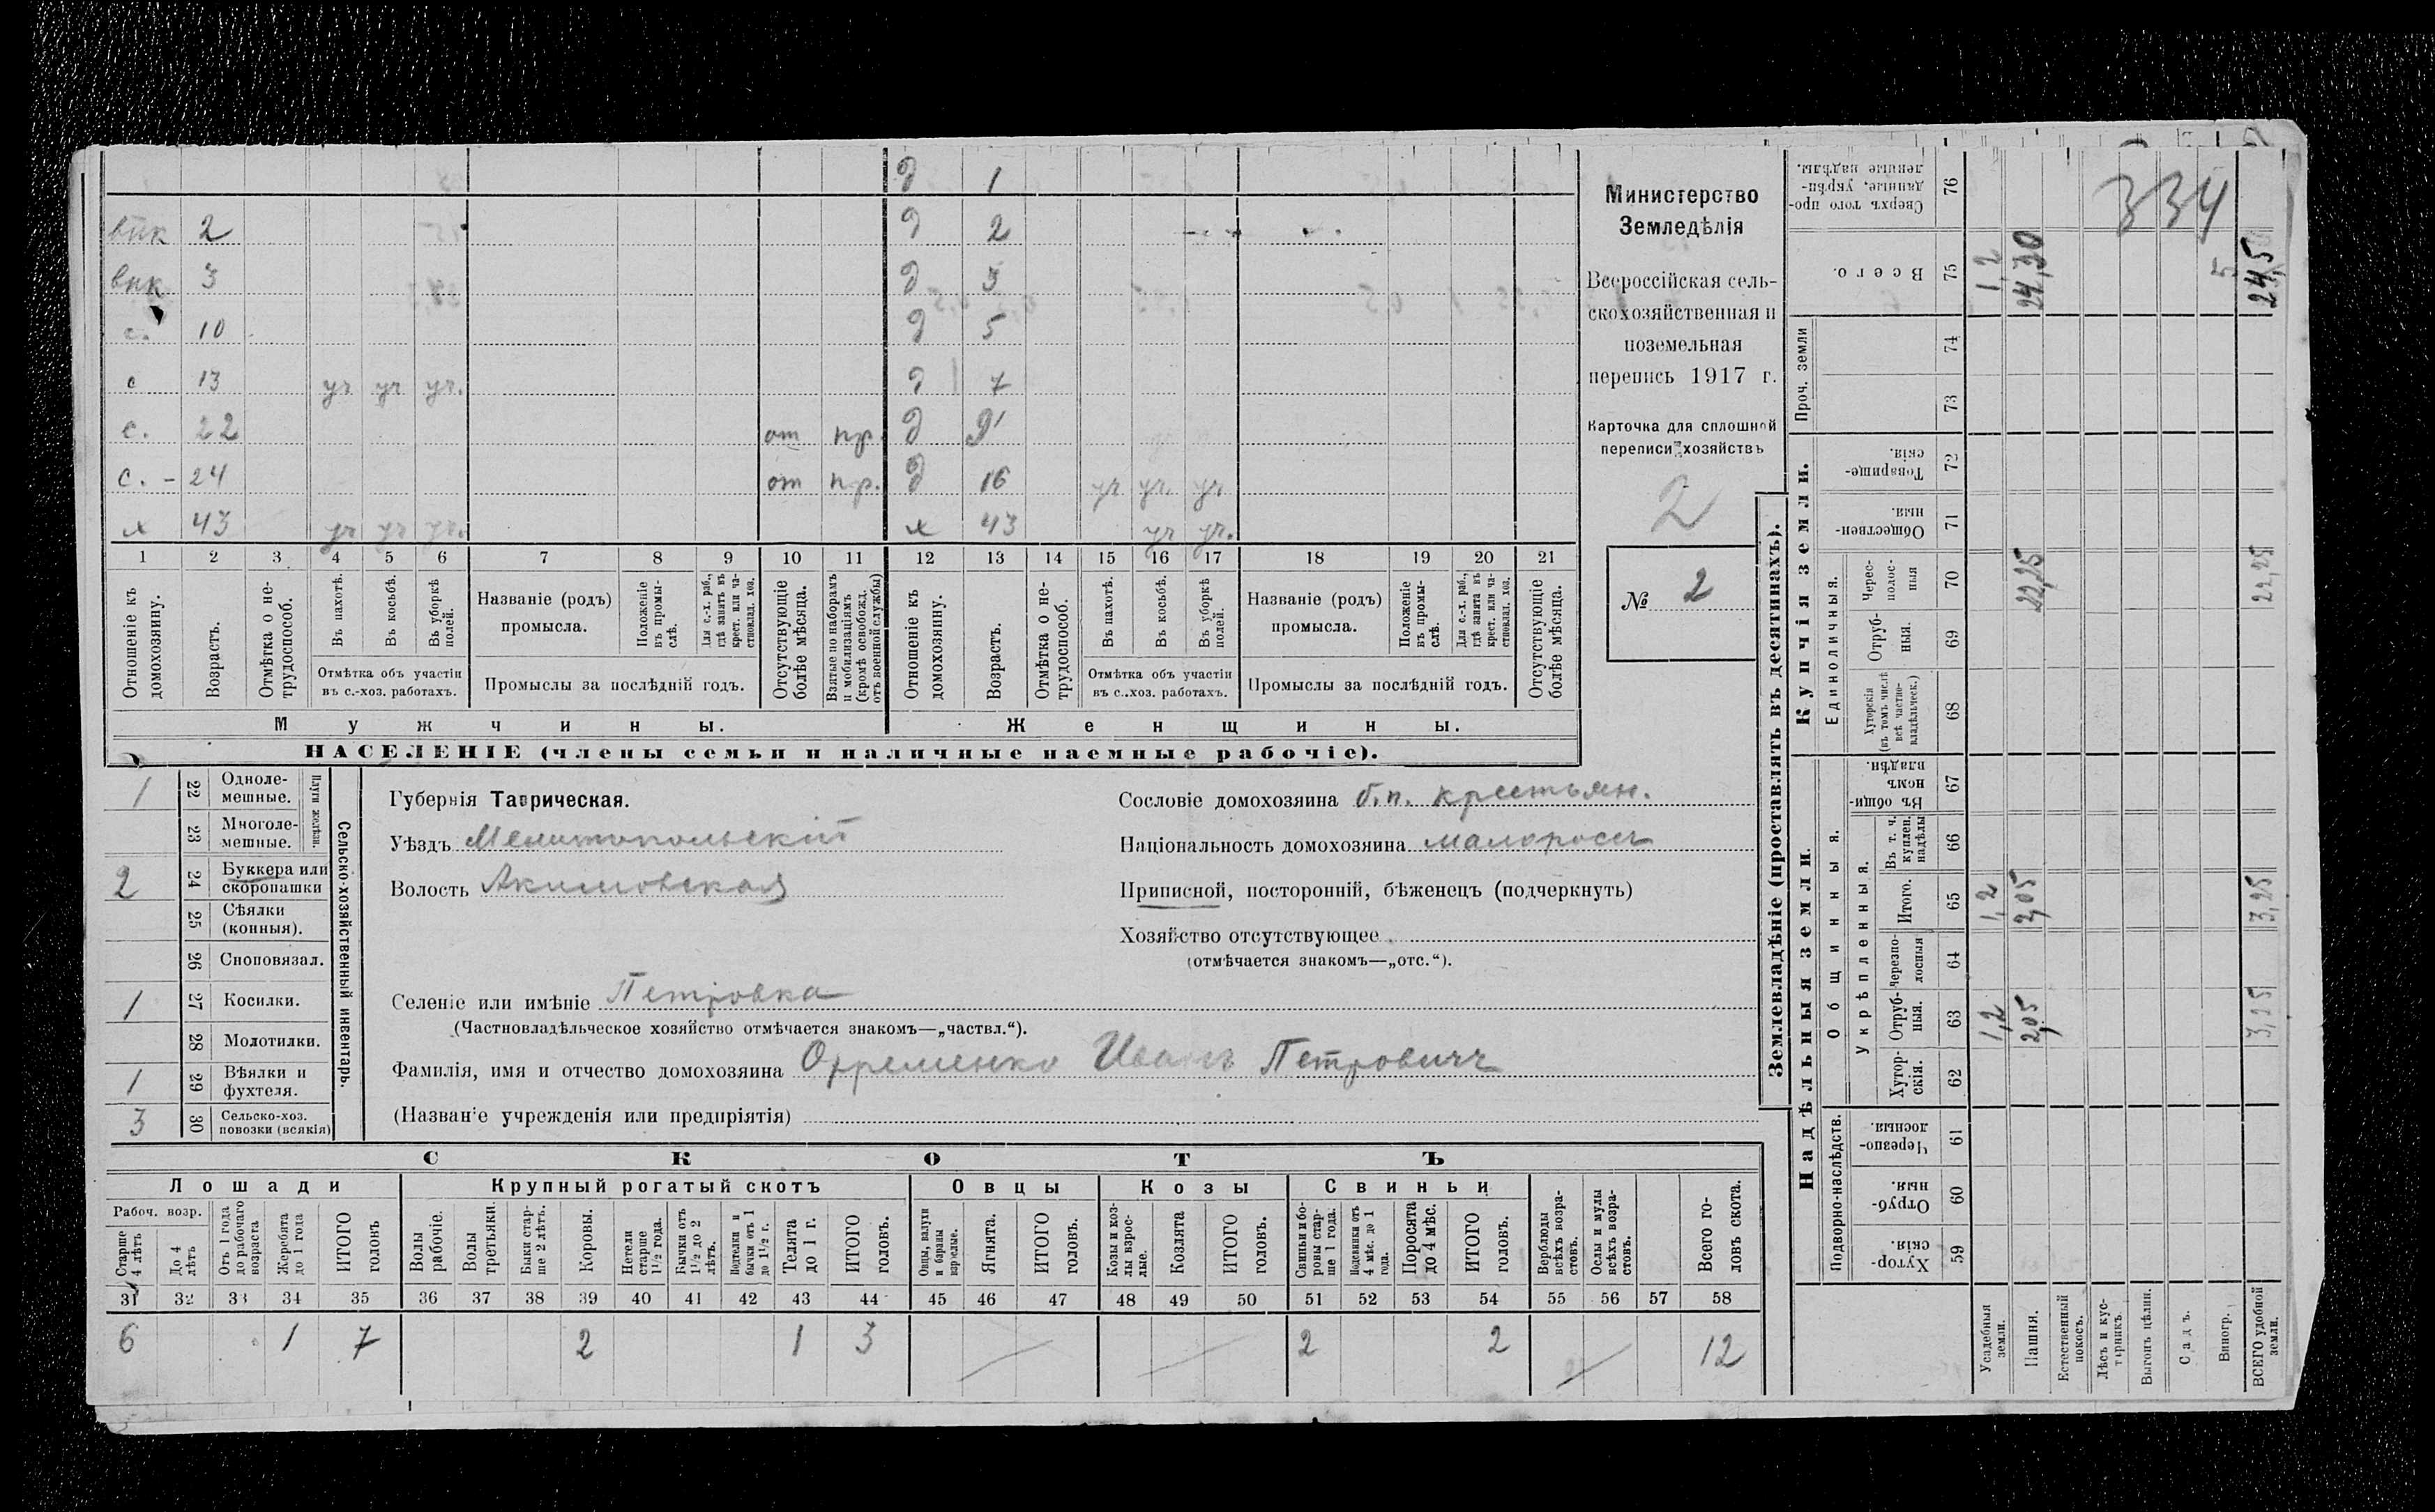 д 1
впк 2 д 2
внк 3 д 3
с. 10 д 5
с 13 уч уч уч. д 7
с. 22 от пр. д 9
с. - 24 от пр. д 16 уч уч. уч
х 43 уч уч уч. х 43 уч уч.
1 2 3 4 5 6 7 8 9 10 11 12 13 14 15 16 17 18 19 20 21
Отношеніе къ домохозяину.
Возрастъ.
Отмѣтка о нетрудоспособ.
Въ пахотѣ.
Въ косьбѣ.
Въ уборкѣ полей.
Отмѣтка объ участіи
въ с.-хоз. работахъ.
Названіе (родъ)
промысла.
Положеніе въ промыслѣ.
Для с.-х. раб., гдѣ занятъ въ крест. или частновлад. хоз.
Промыслы за послѣдній годъ.
Отсутствующіе болѣе мѣсяца.
Взятые по наборамъ и мобилизаціямъ (кромѣ освобожд. отъ военной службы)
Отношеніе къ домохозяину.
Возрастъ.
Отмѣтка о нетрудоспособ.
Въ пахотѣ.
Въ косьбѣ.
Въ уборкѣ полей.
Отмѣтка объ участіи
въ с.-хоз. работахъ.
Названіе (родъ)
промысла.
Положеніе въ промыслѣ.
Для с.-х. раб., гдѣ занята въ крест. или частновлад. хоз.
Промыслы за послѣдній годъ.
Отсутствующіе болѣе мѣсяца.
Мужчины. Женщины.
НАСЕЛЕНІЕ (члены семьи и наличные наемные рабочіе).
Министерство
Земледѣлія
Всероссійская сель-
скохозяйственная и
поземельная
перепись 1917 г.
Карточка для сплошной
переписи хозяйствъ
2
№ 2
1 22 Одноле-
мешные.
23 Многоле-
мешные.
Плуги желѣзн.
2 24 Буккера или
скоропашки
25 Сѣялки
(конныя).
26 Сноповязал.
1 27 Косилки.
28 Молотилки.
1 29 Вѣялки и
фухтеля.
3 30 Сельско-хоз.
повозки (всякія)
Сельско-хозяйственный инвентарь.
Губернія Таврическая.
Уѣздъ Мелитопольскій
Волость Акимовская
Сословіе домохозяина б.п. крестьян.
Національность домохозяина малороссъ
Приписной, посторонній, бѣженецъ (подчеркнуть)
Хозяйство отсутствующее
(отмѣчается знакомъ—„отс.“).
Селеніе или имѣніе Петровка
(Частновладѣльческое хозяйство отмѣчается знакомъ—„частвл.“).
Фамилія, имя и отчество домохозяина Иванъ Петровичъ
(Названіе учрежденія или предпріятія)
СКОТЪ
Лошади Крупный рогатый скотъ Овцы Козы Свиньи
Рабоч. возр.
Старше 4 лѣтъ
До 4 лѣтъ
Отъ 1 года до рабочаго возраста
Жеребята до 1 года
ИТОГО головъ
Волы рабочіе.
Волы третьяки.
Быки старше 2 лѣтъ.
Коровы.
Нетели старше 1½ года.
Бычки отъ 1½ до 2 лѣтъ.
Подтелки и бычки отъ 1 до 1½ г.
Телята до 1 г.
ИТОГО головъ.
Овцы, валухи и бараны взрослые.
Ягнята.
ИТОГО головъ.
Козы и козлы взрослые.
Козлята
ИТОГО головъ.
Свиньи и боровы старше 1 года.
Подсвинки отъ 4 мѣс. до 1 года.
Поросята до 4 мѣс.
ИТОГО головъ.
Верблюды всѣхъ возрастовъ.
Ослы и мулы всѣхъ возрастовъ.
Всего головъ скота.
31 32 33 34 35 36 37 38 39 40 41 42 43 44 45 46 47 48 49 50 51 52 53 54 55 56 57 58
6 1 7 2 1 3 2 2 12
Землевладѣніе (проставлять въ десятинахъ).
Купчія земли.
Надѣльныя земли.
Проч. земли
Единоличныя.
Общинныя.
Укрѣпленныя.
Подворно-наслѣдств.
Сверхъ того проданные, укрѣпленные надѣлы. 76
Всего. 75
74
73
Товарищескія. 72
Общественныя. 71
Чересполосныя 70
Отрубныя. 69
Хуторскія (въ томъ числѣ всѣ частновладѣльческ.) 68
Въ общиномъ владѣн. 67
Въ т. ч. куплен. надѣлы 66
Итого. 65
Черезполосныя 64
Отрубныя. 63
Хуторскія. 62
Черезполосныя. 61
Отрубныя. 60
Хуторскія. 59
Усадебныя земли.
Пашня.
Естественный покосъ.
Лѣсъ и кустарникъ.
Выгонъ цѣлин.
Садъ.
Виногр.
ВСЕГО удобной земли.
334
1,2 24,30 5 24,5
22,25 22,25
1,2 2,05 3,25
1,2 2,05 3,25